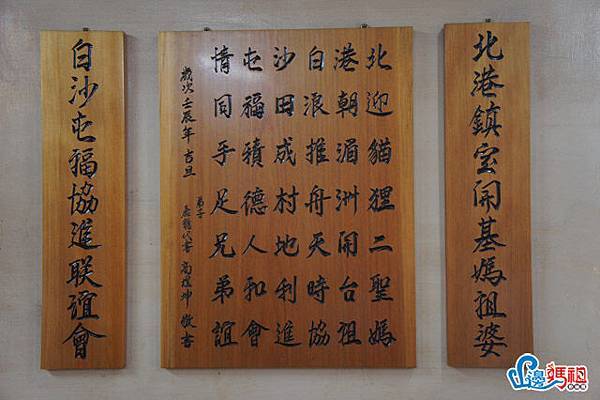 北港鎮室開基媽祖婆
北迎貓狸二聖媽
港朝湄洲開台祖
白浪推舟天時協
沙田成村地利進
屯福積德人和會
情同手足兄弟誼
歲次壬辰年吉旦
弟子
代書 高 坤 敬書
白沙屯福協進联誼會
山邊媽祖